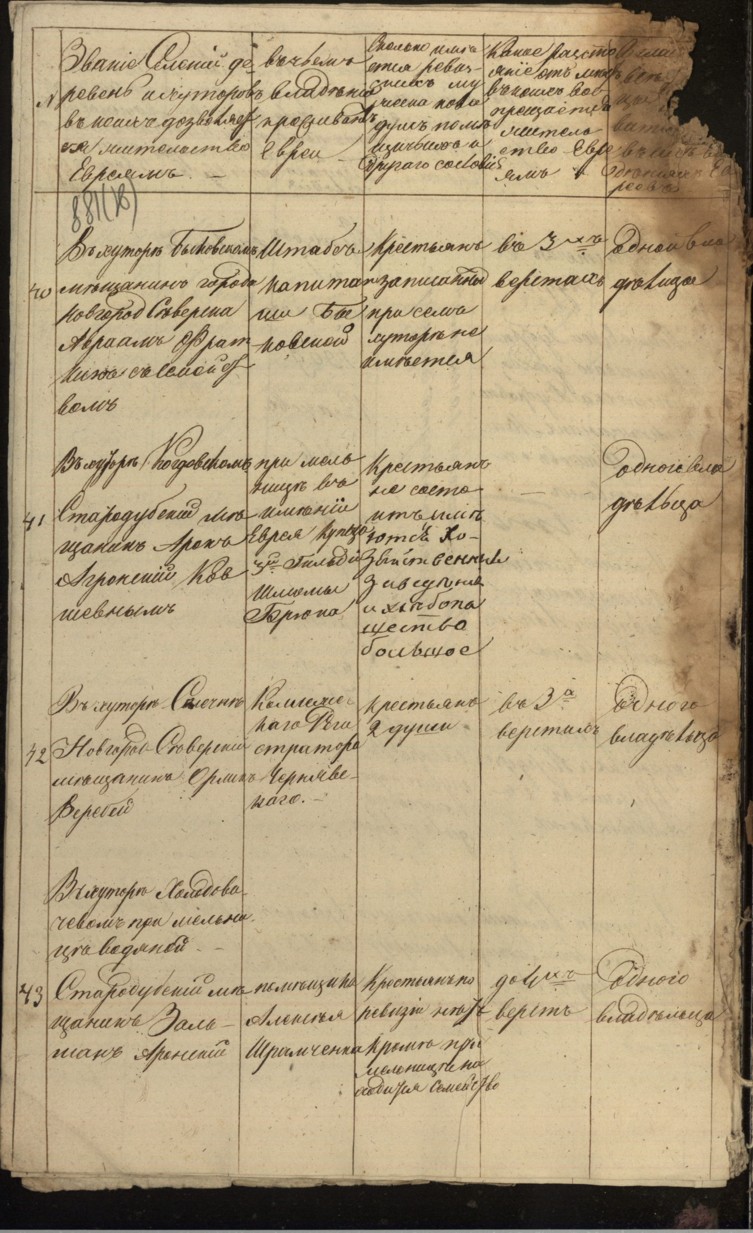 №
Званіе Селеній де
ревень и хуторовъ
въ коихъ дозволяет
ся жительство
Евреямъ. —
въ чьемъ
владѣніи
проживаютъ
Евреи —
Сколько имѣе
тся ревиз
скихъ му
жеска пола
душъ помѣ
щичьихъ и
другаго состоянія
Какое разсто
яніе отъ мѣстъ
въ коихъ вос
прещается
житель
ство Евре
ямъ
881(18)
40
Въ хуторѣ Быковскомъ
мѣщанинъ города
Новгородсѣверска
Авраамъ
съ семейст
вомъ
Штабсъ
капитан
ши Бы
ковской
Крестьянъ
записанныхъ
при семъ
хуторѣ не
имѣется
въ 3хъ
верстахъ
одной вла
дѣлицы
41
Въ хуторѣ
Стародубскій мѣ
щанинъ Аронъ
Агронскій
при мель
ницѣ въ
имѣніи
Еврея купца
3й Гильдіи
Шлиомы
Брюка
Крестьянъ
не состо
итъ имѣ
ютсъ хо
зяйственныя
заведенія
и хлѣбопа
шество
большое
—
одного вла
дѣльца
42
Въ хуторѣ
Новгород Сѣверскій
мѣщанинъ Орликъ
Веребей
Коллежс
каго Реги
стратора
Чернявс
каго. —
крестьянъ
2 души
въ 3хъ
верстахъ
одного
владѣльца
43
Въ хуторѣ
чевомъ при мельни
цѣ водяной —
Стародубскій мѣ
щанинъ Заль
манъ Аронскій
помѣщика
Алексѣя
Шрамченка
Крестьянъ по
ревизіи нѣтъ
Кромѣ при
мельницѣ на
ходится семейство
до 4хъ
верстъ
Одного
владѣльца